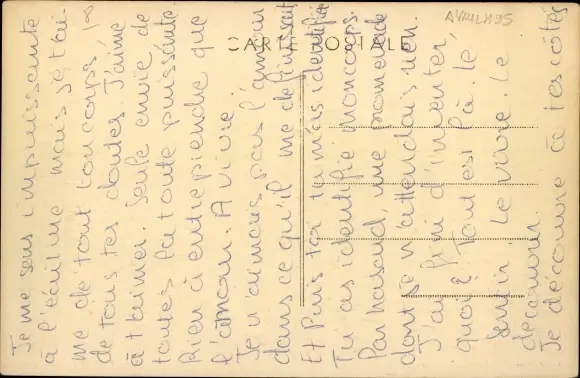 CARTE POSTALE
AVRIL 1925
Je me sens impuissante
à l'écrit me mais je t'ai-
me de tout ton corps
de tous tes doutes. J'aime
à t'aimer. Seule envie de
toutes la toute puissante.
Rien à entreprendre que
l'amour. A vivre.
Je n'aimais pas l'amour
dans ce qu'il me définissait
Et Puis toi tu m'as identifiée
Tu as identifié mon corps.
Par hasard, une promenade
dont je n'attendais rien.
J'ai fini d'inventer,
quoi? Tout est là. Le
sentir. Le vivre. Le
découvrir.
Je découvre à tes côtés